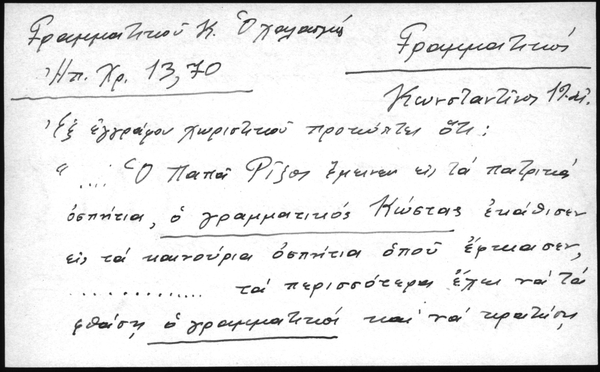 Γραμματικού Κ. Ὁ χαλασμός
Ἠπ. Χρ. 13,70
Γραμματικός
Κωνσταντῖνος
Ἐξ ἐγγράφου χωριστικοῦ προκύπτει ὅτι:
"... Ὁ Παπᾶ Ρίζος ἔμεινεν εἰς τά πατρικά
ὁσπήτια, ὁ γραμματικός Κώστας ἐκάθισεν
εἰς τά καινούρια ὁσπήτια ὁπού ἔφκιασεν,
.............. τά περισσότερα ἔχει νά τά
φθάσῃ ὁ γραμματικός καί νά κρατήσῃ